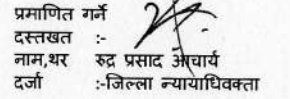 प्रमाणित गर्ने
दस्तखत :-
नाम,थर रुद्र प्रसाद आचार्य
दर्जा :-जिल्ला न्यायाधिवक्ता